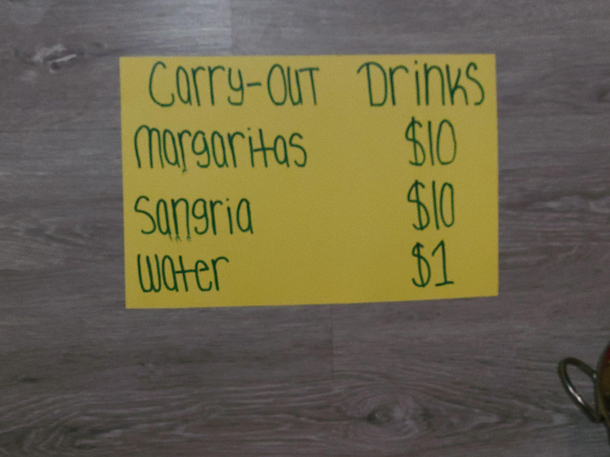 Carry-Out Drinks
Margaritas $10
Sangria $10
Water $1